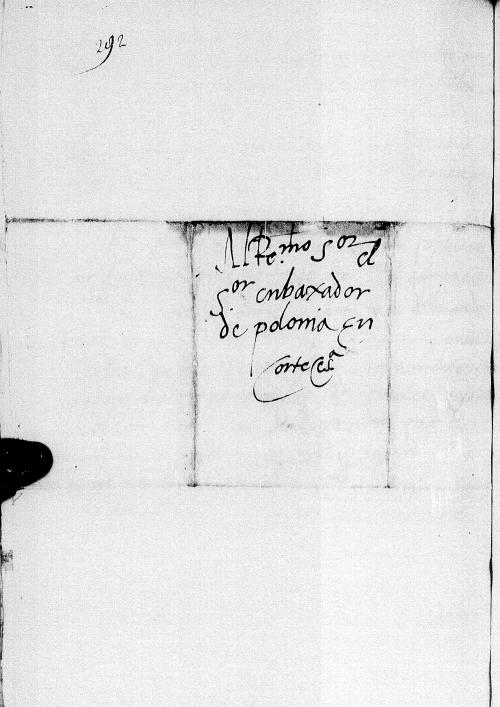 292
Al Re.mo sor el
sor enbaxador
de polonia en
Corte Cesa